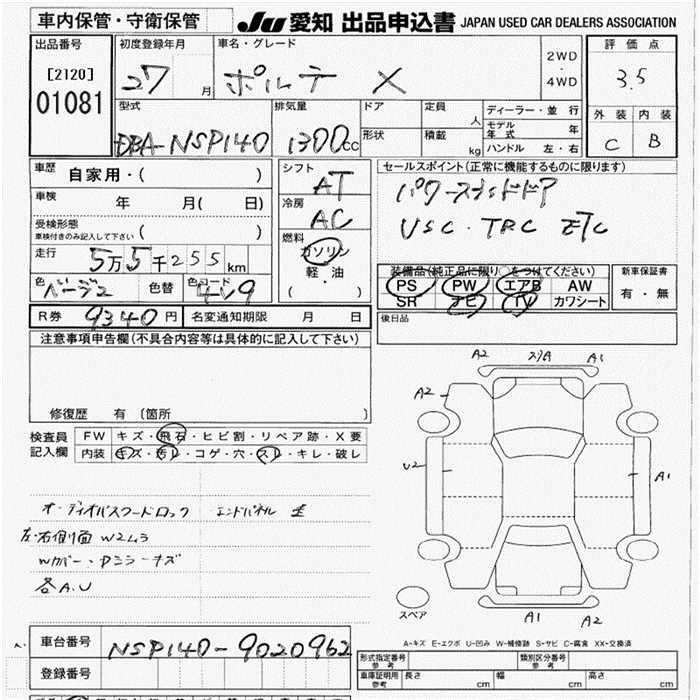 車内保管・守衛保管 JU 愛知 出品申込書 JAPAN USED CAR DEALERS ASSOCIATION
出品番号 初度登録年月 車名・グレード 2WD ・ 4WD 評価点
[2120] 27 月 ポルテ X 3.5
01081
型式 排気量 ドア 定員 人 ディーラー・並行 外装 内装
DBA-NSP140 1300cc 形状 積載 kg モデル年式 年 C B
ハンドル 左・右
車歴 自家用・( ) シフト AT セールスポイント(正常に機能するものに限ります)
車検 年 月( 日) 冷房 AC パワースライドドア
受検形態 ( ) VSC・TRC ETC
車検付きのみ記入して下さい
燃料 ガソリン 軽・油 ( )
走行 5万5千255km
装備品(純正品に限り○をつけてください) 新車保証書
色 ベージュ 色替 色コード 4V9 PS PW エアB AW 有・無
SR ナビ TV カワシート
R券 9340円 名変通知期限 月 日 後日品
注意事項申告欄(不具合内容等は具体的に記入して下さい)
A2 A1
A2
修復歴 有 (箇所 )
検査員記入欄 FW キズ・飛石・ヒビ割・リペア跡・X要
内装 キズ・汚レ・コゲ・穴・スレ・キレ・破レ
U2 A1
オーディオパスワードロック エンドパネル
左・右側面 W2ムラ
Wカバー・Dミラーキズ
各A.U
スペア A1 A2
A-キズ E-エクボ U-凹み W-補修跡 S-サビ C-腐食 XX-交換済
車台番号 NSP140-9020962
登録番号
形式指定番号 参考 類別区分番号 参考
車庫証明用 参考 長さ cm 幅 cm 高さ cm